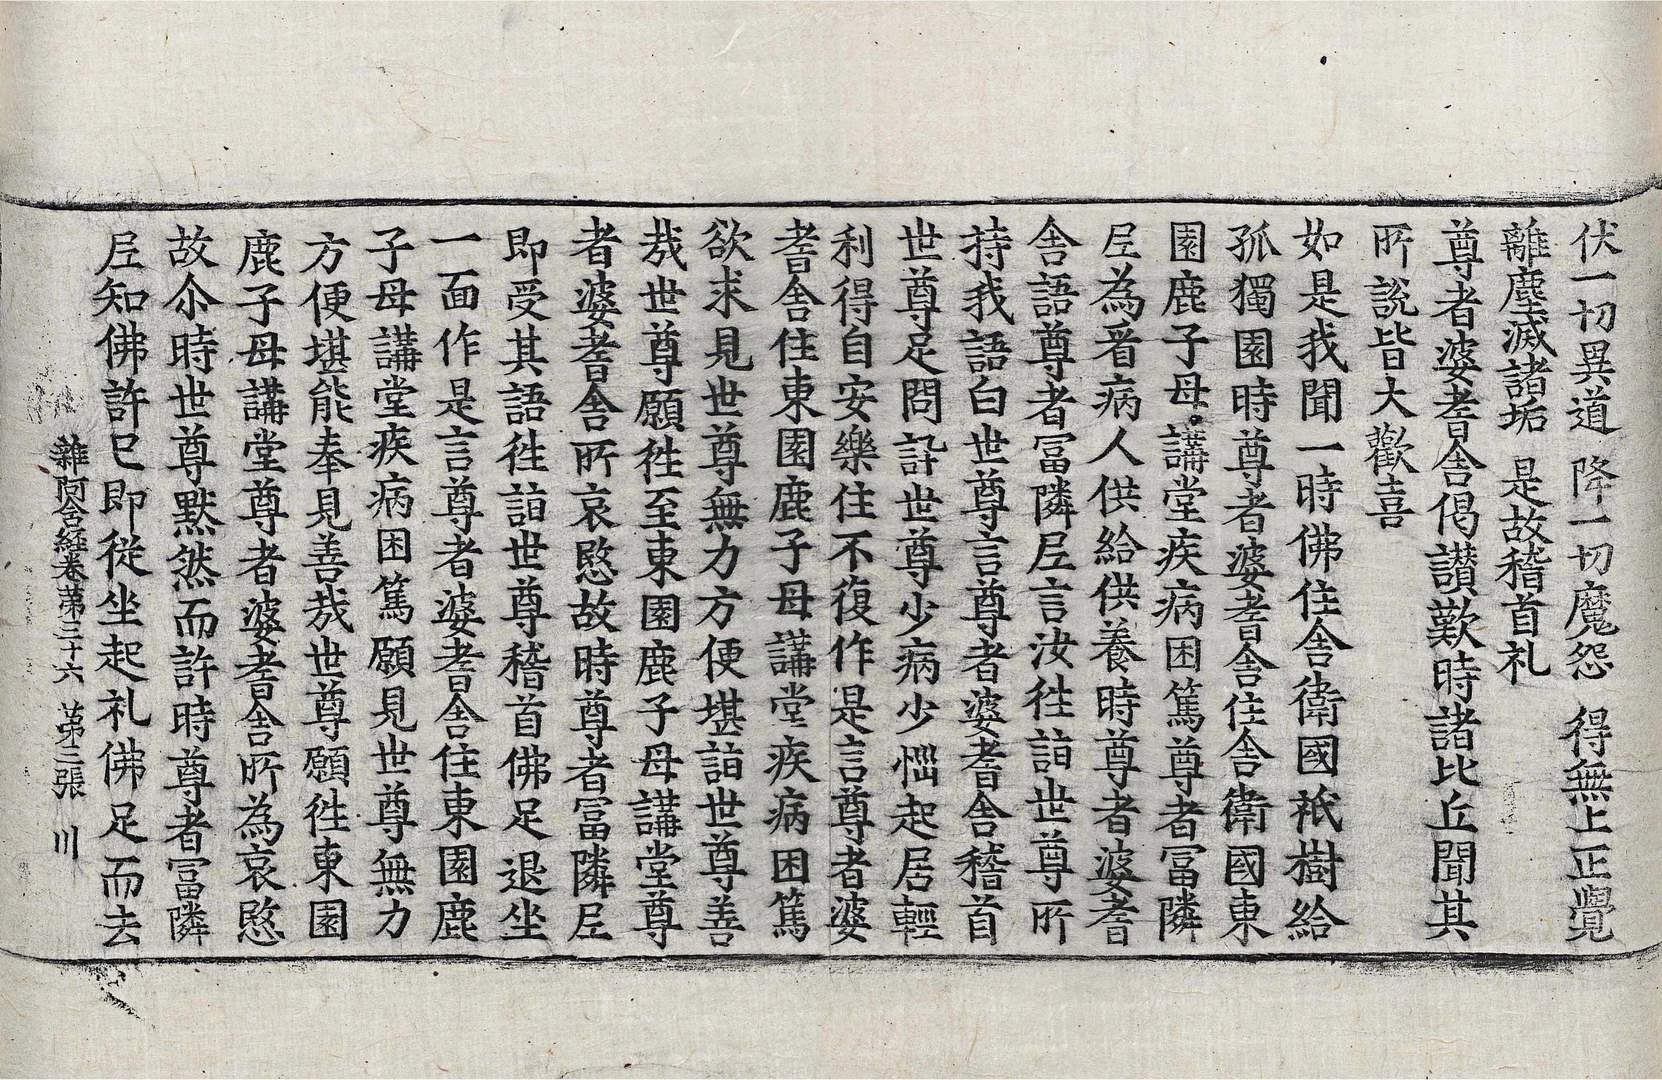 伏一切異道　降一切魔怨　得無上正覺
離塵滅諸垢　是故稽首礼
尊者婆耆舎偈讃歎時諸比丘聞其
所說皆大歡喜
如是我聞一時佛住舎衛國祇樹給
孤獨園時尊者婆耆舎住舎衛國東
園鹿子母講堂疾病困篤尊者冨隣
𡰱為看病人供給供養時尊者婆耆
舎語尊者冨隣𡰱言汝徃詣世尊所
持我語白世尊言尊者婆耆舎稽首
世尊足問訊世尊少病少惱起居輕
利得自安樂住不復作是言尊者婆
耆舎住東園鹿子母講堂疾病困篤
欲求見世尊無力方便堪詣世尊善
㢤世尊願徃至東園鹿子母講堂尊
者婆耆舎所哀愍故時尊者冨隣𡰱
即受其語徃詣世尊稽首佛足退坐
一面作是言尊者婆耆舎住東園鹿
子母講堂疾病困篤願見世尊無力
方便堪能奉見善㢤世尊願徃東園
鹿子母講堂尊者婆耆舎所為哀愍
故尒時世尊黙然而許時尊者冨隣
𡰱知佛許已即從坐起礼佛足而去
雜阿含経卷第三十六　第二張　川